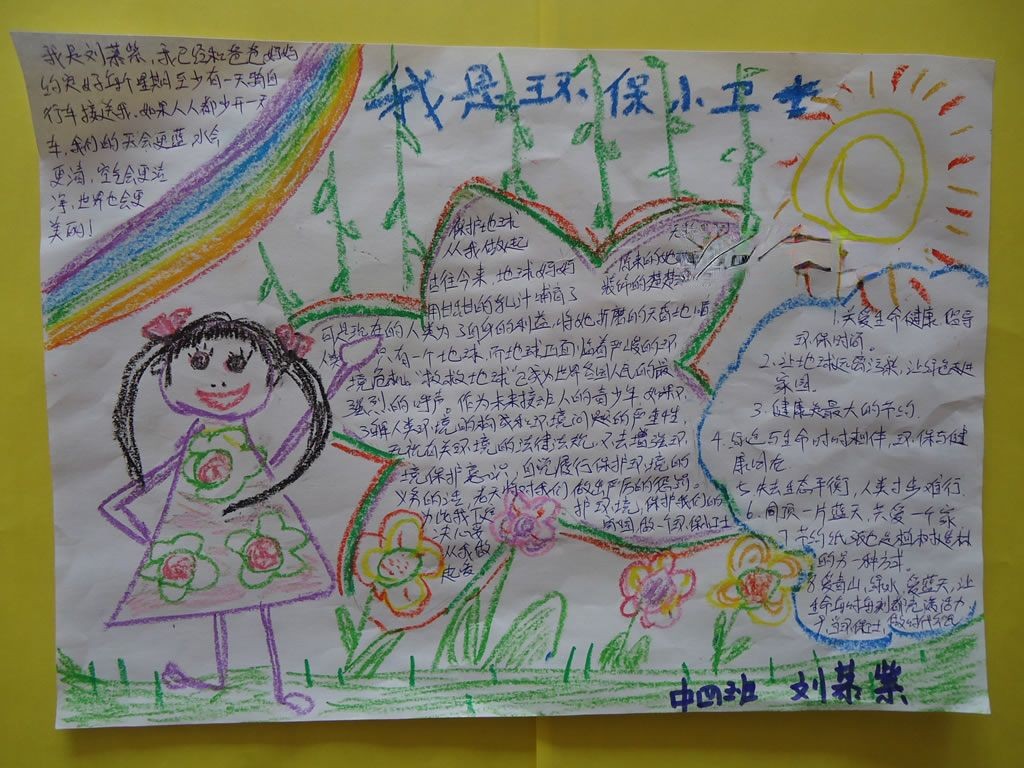 我是环保小卫士
我是刘慕柴,我已经和爸爸妈妈
约定好每个星期至少有一天骑自
行车接送我,如果人人都少开一天
车,我们的天会更蓝,水会
更清,空气会更洁
净,世界也会更
美丽!
保护地球
从我做起
古往今来,地球妈妈
用甜甜的乳汁哺育了
原来的她
装饰的楚楚
可是现在的人类为了自身的利益,将她折磨的天昏地暗
人类只有一个地球,而地球正面临着严峻的环
境危机。"救救地球"已成为世界各国人民的最
强烈的呼声。作为未来接班人的青少年,如果不
了解人类环境的构成和环境问题的严重性,
无视有关环境的法律法规,不去增强环
境保护意识,自觉履行保护环境的
义务的话,老天将对我们做出严厉的惩罚。
为此我下定
决心要
从我做
起爱
护环境,保护我们的
家园,做一个环保卫士
1.关爱生命健康,倡导
环保时尚。
2.让地球远离污染,让绿色走进
家园。
3.健康是最大的节约.
4.绿色与生命时时相伴,环保与健
康同在
5.失去生态平衡,人类寸步难行.
6.同顶一片蓝天,共爱一个家.
7.节约纸张也是植树护林
的另一种方式.
8.爱青山,绿水,爱蓝天,让
生命每时每刻都充满活力
9.当环保卫士,做时代公民
中四班 刘慕柴